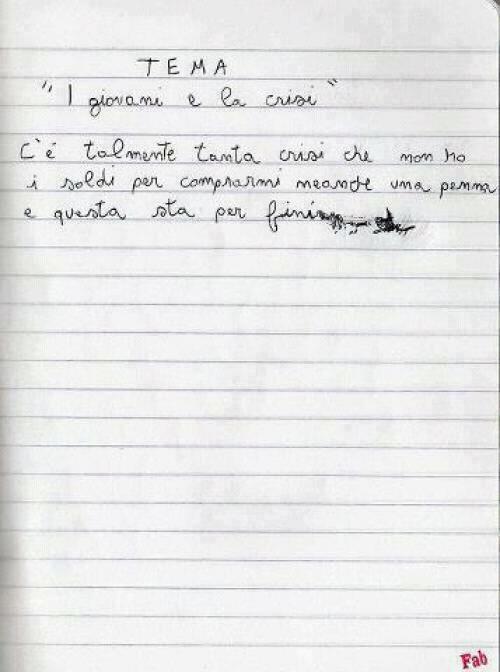 TEMA
"I giovani e la crisi"
C'è talmente tanta crisi che non ho
i soldi per comprarmi neanche una penna
e questa sta per fini
Fab